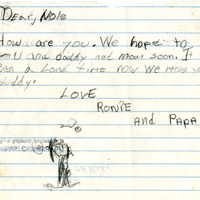 Dear, Nole
How are you. We hope to
you and daddy and mom soon. It
been a Long time now we miss you
buddy.
LOVE
RONIE
and PAPA